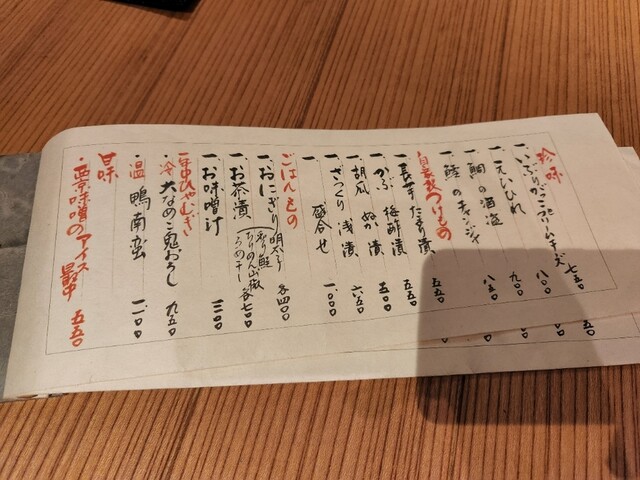 珍味
一、いぶりがっこクリームチーズ 七五〇
一、えいひれ 八〇〇
一、鯛の酒盗 九〇〇
一、鱈のチャンジャ 八五〇
自家製つけもの
一、長芋たまり漬 五五〇
一、かぶ 梅酢漬 五五〇
一、胡瓜 ぬか漬 五〇〇
一、ざっくり 浅漬 六五〇
一、盛合せ 一、〇〇〇
ごはんもの
一、おにぎり(明太子 炙り鮭 ちりめん山椒 うめ干し) 各四〇〇
一、お茶漬 各七〇〇
一、お味噌汁 三〇〇
年中ひやむぎ
・冷 大なめこ鬼おろし 九五〇
・温 鴨南蛮 一、一〇〇
甘味
・西京味噌のアイス最中 五五〇